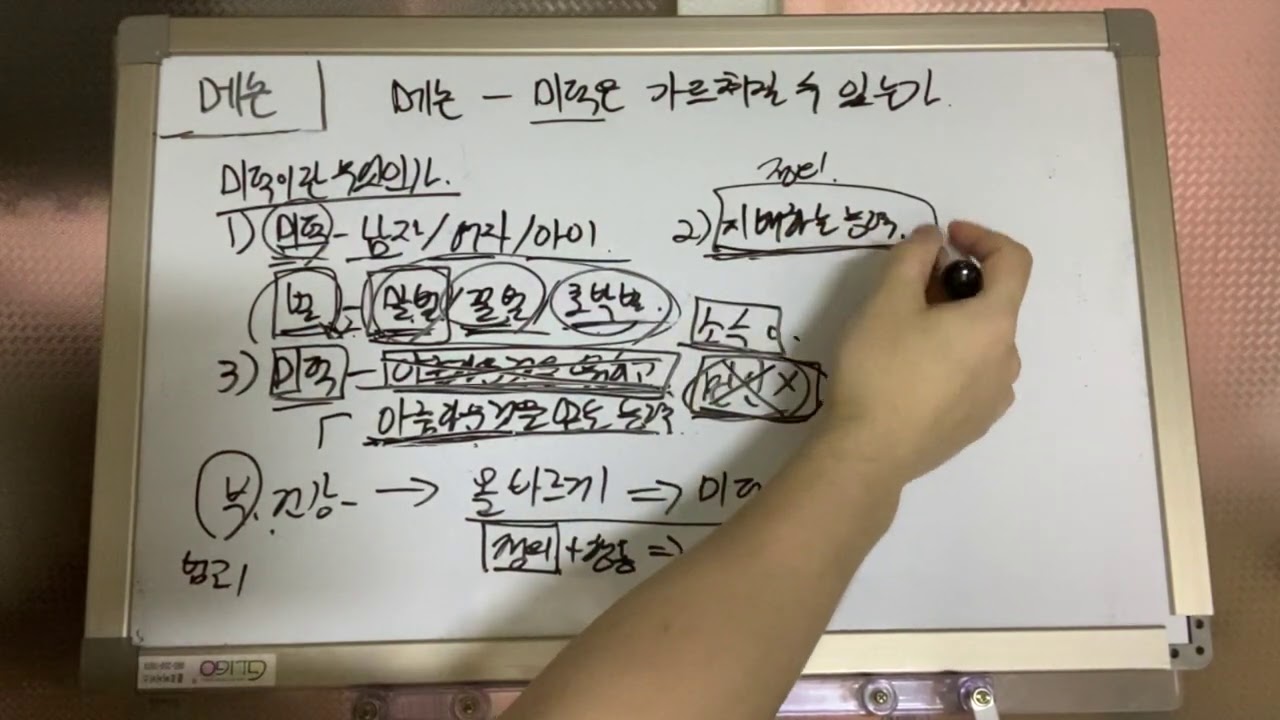 메논
메논 - 미덕은 가르쳐질 수 있는가.
미덕이란 무엇인가.
1) 미덕 - 남자/여자/아이.
벌 = 말벌/꿀벌/호박벌.
정의!
2) 지배하는 능력.
소수 아.
3) 미덕 - 아름다운 것을 원하고
아름다운 것을 얻는 능력.
부. 건강 → 올바르게 ⇒ 미덕
정의 + 행동 ⇒